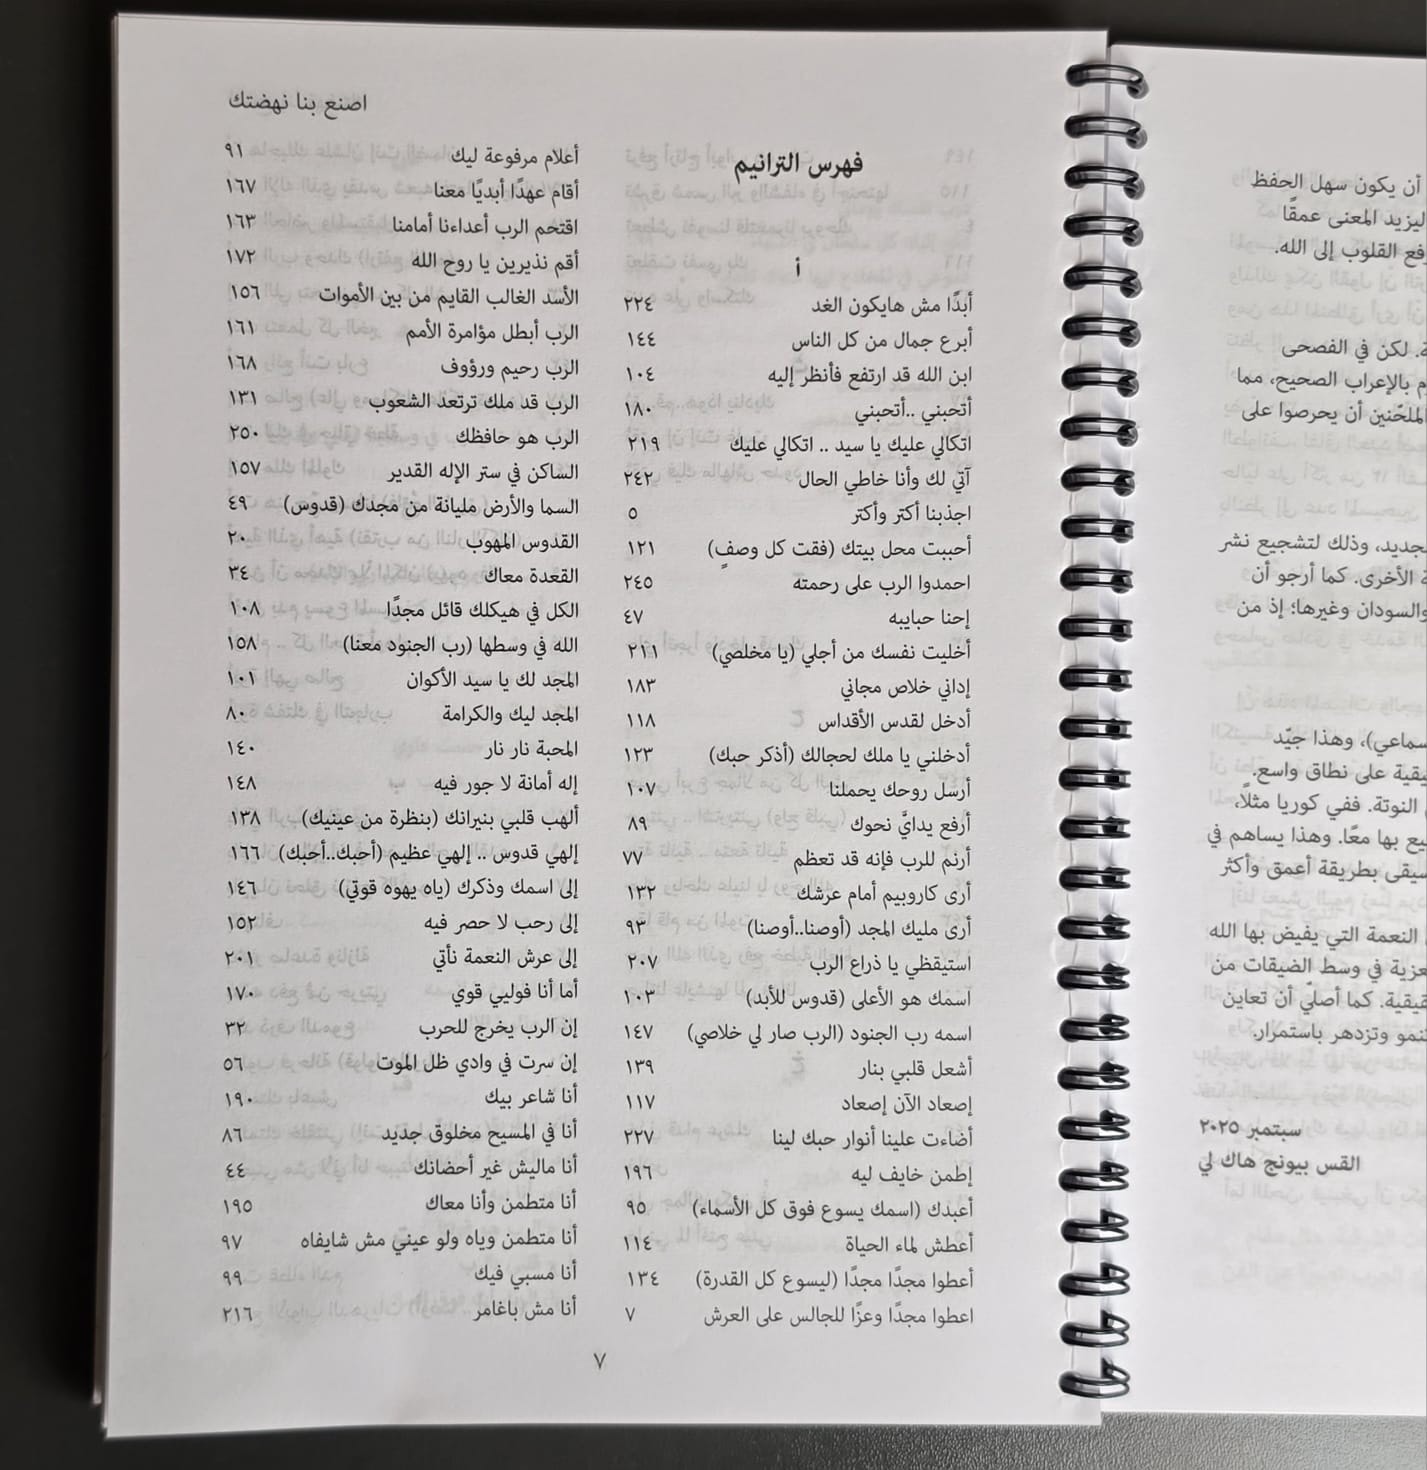 اصنع بنا نهضتك
فهرس الترانيم
أ
أبدًا مش هايكون الغد ٢٢٤
أبرع جمال من كل الناس ١٤٤
ابن الله قد ارتفع فأنظر إليه ١٠٤
أتحبني ..أتحبني ١٨٠
اتكالي عليك يا سيد .. اتكالي عليك ٢١٩
آتي لك وأنا خاطي الحال ٢٤٢
اجذبنا أكتر وأكتر ٥
أحببت محل بيتك (فقت كل وصفٍ) ١٢١
احمدوا الرب على رحمته ٢٤٥
إحنا حبايبه ٤٧
أخليت نفسك من أجلي (يا مخلصي) ٢١١
إداني خلاص مجاني ١٨٣
أدخل لقدس الأقداس ١١٨
أدخلني يا ملك لحجالك (أذكر حبك) ١٢٣
أرسل روحك يحملنا ١٠٧
أرفع يدايَّ نحوك ٨٩
أرنم للرب فإنه قد تعظم ٧٧
أرى كاروبيم أمام عرشك ١٣٢
أرى مليك المجد (أوصنا..أوصنا) ٩٣
استيقظي يا ذراع الرب ٢٠٧
اسمك هو الأعلى (قدوس للأبد) ١٠٣
اسمه رب الجنود (الرب صار لي خلاصي) ١٤٧
أشعل قلبي بنار ١٣٩
إصعاد الآن إصعاد ١١٧
أضاءت علينا أنوار حبك لينا ٢٢٧
إطمن خايف ليه ١٩٦
أعبدك (اسمك يسوع فوق كل الأسماء) ٩٥
أعطش لماء الحياة ١١٤
أعطوا مجدًا مجدًا (ليسوع كل القدرة) ١٣٤
اعطوا مجدًا وعزًا للجالس على العرش ٧
أعلام مرفوعة ليك ٩١
أقام عهدًا أبديًا معنا ١٦٧
اقتحم الرب أعداءنا أمامنا ١٦٣
أقم نذيرين يا روح الله ١٧٢
الأسد الغالب القايم من بين الأموات ١٥٦
الرب أبطل مؤامرة الأمم ١٦١
الرب رحيم ورؤوف ١٦٨
الرب قد ملك ترتعد الشعوب ١٣١
الرب هو حافظك ٢٥٠
الساكن في ستر الإله القدير ١٥٧
السما والأرض مليانة من مجدك (قدوس) ٤٩
القدوس المهوب ٢٠
القعدة معاك ٣٤
الكل في هيكلك قائل مجدًا ١٠٨
الله في وسطها (رب الجنود معنا) ١٥٨
المجد لك يا سيد الأكوان ١٠١
المجد ليك والكرامة ٨٠
المحبة نار نار ١٤٠
إله أمانة لا جور فيه ١٤٨
ألهب قلبي بنيرانك (بنظرة من عينيك) ١٣٨
إلهي قدوس .. إلهي عظيم (أحبك..أحبك) ١٦٦
إلى اسمك وذكرك (ياه يهوه قوتي) ١٤٦
إلى رحب لا حصر فيه ١٥٢
إلى عرش النعمة نأتي ٢٠١
أما أنا فوليي قوي ١٧٠
إن الرب يخرج للحرب ٣٢
إن سرت في وادي ظل الموت ٥٦
أنا شاعر بيك ١٩٠
أنا في المسيح مخلوق جديد ٨٦
أنا ماليش غير أحضانك ٤٤
أنا متطمن وأنا معاك ١٩٥
أنا متطمن وياه ولو عيني مش شايفاه ٩٧
أنا مسبي فيك ٩٩
أنا مش باغامر ٢١٦
٧
أن يكون سهل الحفظ
ليزيد المعنى عمقًا
القلوب إلى الله.
لكن في الفصحى
بالإعراب الصحيح، مما
الملحّنين أن يحرصوا على
وذلك لتشجيع نشر
الأخرى. كما أرجو أن
والسودان وغيرها؛ إذ من
وهذا جيّد
على نطاق واسع.
النوتة. ففي كوريا مثلًا،
بها معًا. وهذا يساهم في
بطريقة أعمق وأكثر
النعمة التي يفيض بها الله
في وسط الضيقات من
كما أصليّ أن تعاين
وتزدهر باستمرار.
سبتمبر ٢٠٢٥
القس بيونج هاك لي